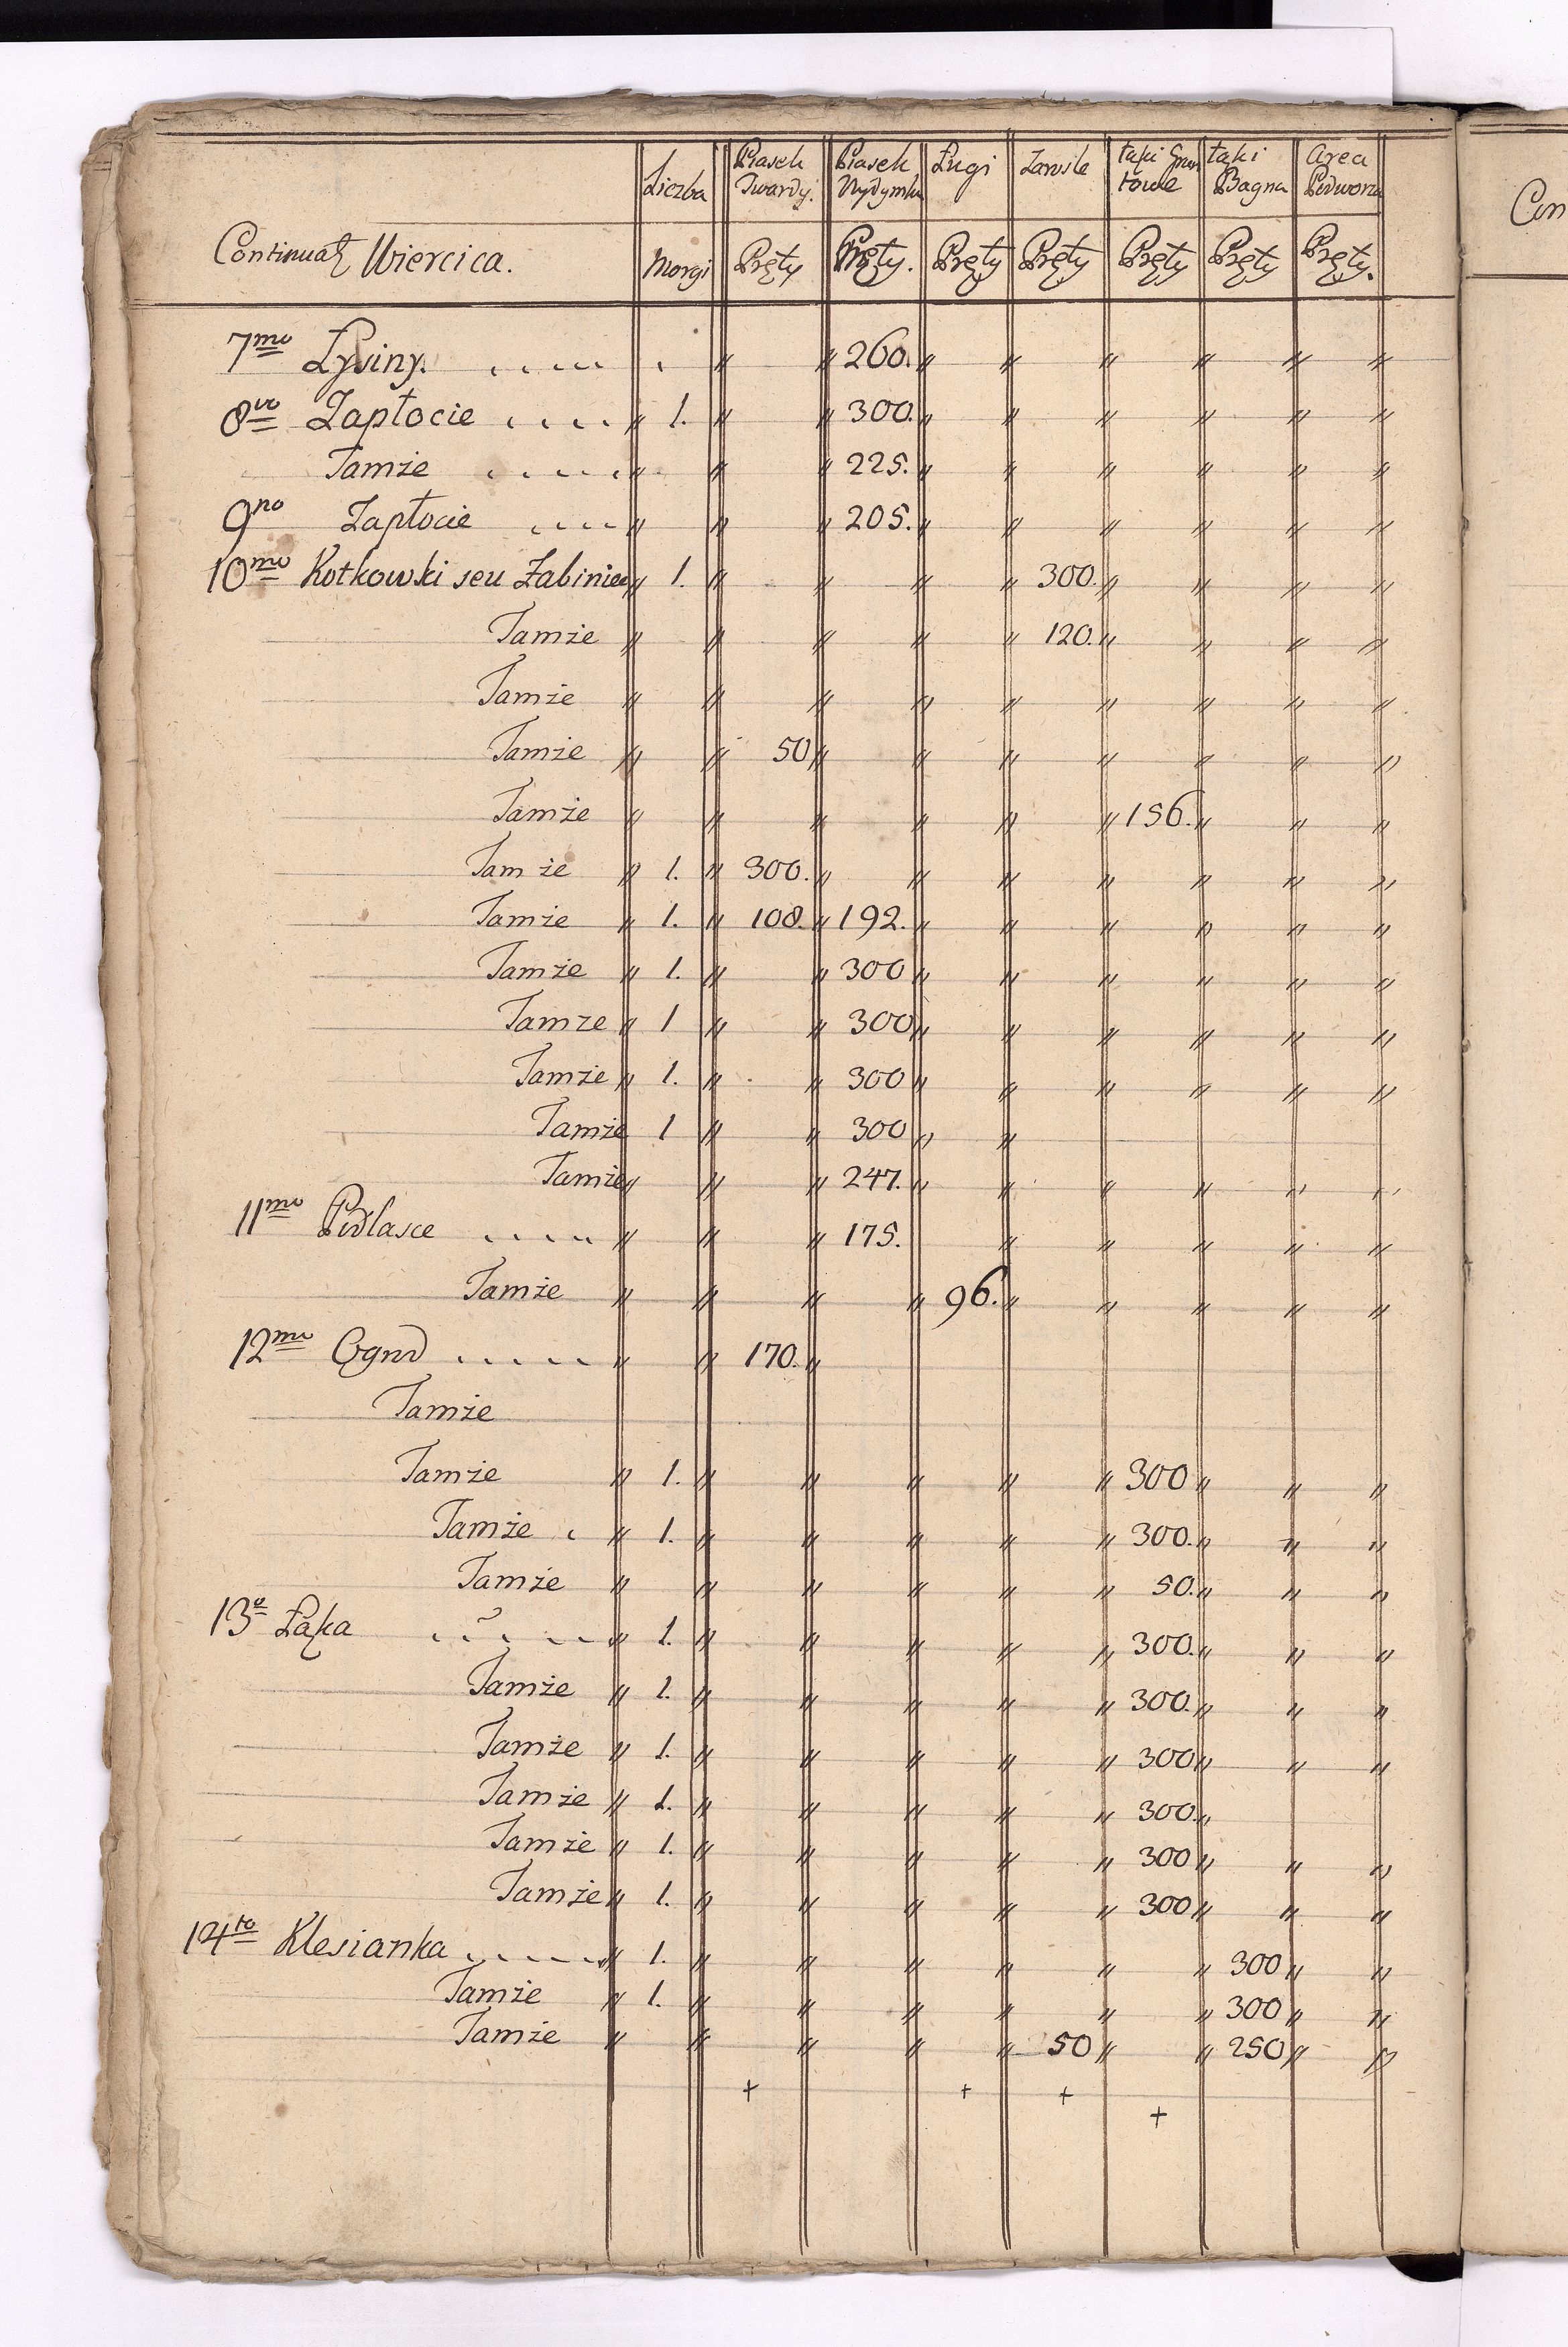 Liczba Piasek Twardy. Piasek Wydymka Ługi Zarosle Łąki Grun towe Łąki Bagna Area Podworza
Wiercica. Morgi Pręty Pręty. Pręty Pręty Pręty Pręty Pręty.
Con
7mo Łysiny. . . . . . 260.
8vo Zapłocie . . . . 1. 300.
Tamże . . . . . 225.
9no Zapłocie . . . . 205.
10mo Kotkowski seu Żabiniec 1. 300.
Tamże 120.
Tamże
Tamże 50
Tamże 156.
Tamże 1. 300.
Tamże 1. 108. 192.
Tamże 1. 300
Tamze 1 300
Tamże 1. 300
Tamże 1 300
Tamże 247.
11mo Podlasce . . . . . 175.
Tamże 96.
12mo Ogrod . . . . . 170.
Tamże
Tamże 1. 300
Tamże 1. 300.
Tamże 50.
13o Łąka . . . . . 1. 300.
Tamże 1. 300.
Tamże 1. 300
Tamże 1. 300.
Tamże 1. 300
Tamże 1. 300
14to Klesianka . . . . . 1. 300
Tamże 1. 300
Tamże 50 250
+ + +
+